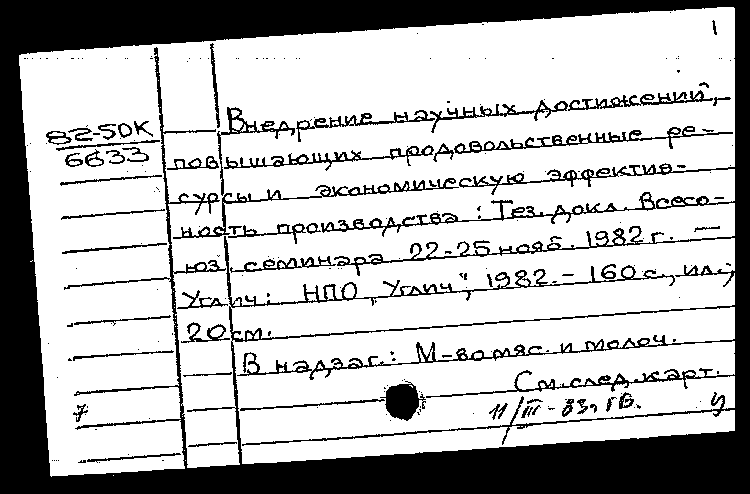 1
82-5DK
6633
Внедрение научных достижений,
повышающих продовольственные ре-
сурсы и экономическую эффектив-
ность производства: Тез. докл. Всесо-
юз. семинара 22-25 нояб. 1982 г. —
Углич: НПО „Углич“, 1982. - 160 с., ил.;
20 см.
В надзаг.: М-во мяс. и молоч.
См. след. карт.
7
11/III-83г. ГВ.
У